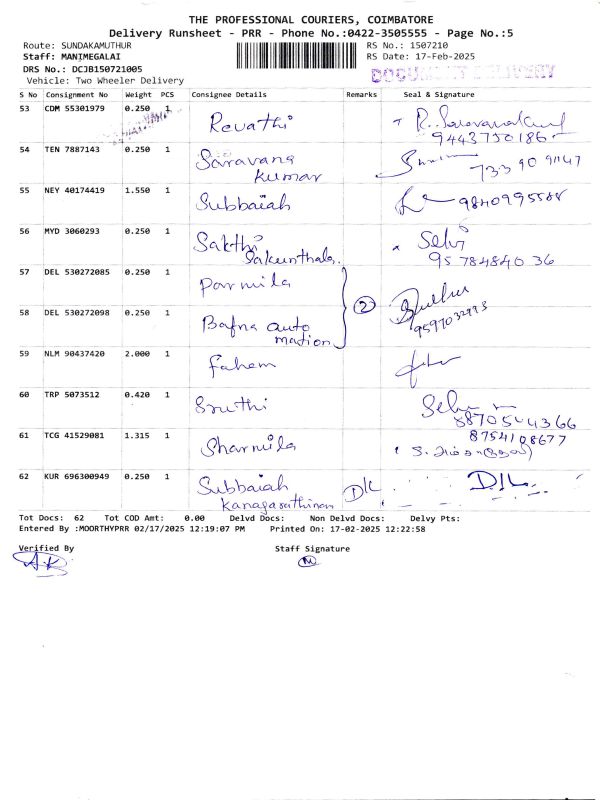 THE PROFESSIONAL COURIERS, COIMBATORE
Delivery Runsheet - PRR - Phone No.:0422-3505555 - Page No.:5
Route: SUNDAKAMUTHUR
RS No.: 1507210
Staff: MANIMEGALAI
RS Date: 17-Feb-2025
DRS No.: DCJB150721005
Vehicle: Two Wheeler Delivery
DOCUMENT DELIVERY
S No Consignment No Weight PCS Consignee Details Remarks Seal & Signature
53 CDM 55301979 0.250 1 Revathi R. Saravanakumar
9443750186
54 TEN 7887143 0.250 1 Saravana
kumar
55 NEY 40174419 1.550 1 Subbaiah 9840995588
56 MYD 3060293 0.250 1 Sakthi Selvi
Sakunthala. 95 784840 36
57 DEL 530272085 0.250 1 Parmila
2
58 DEL 530272098 0.250 1 Bafna auto
mation
59 NLM 90437420 2.000 1 Fahem
60 TRP 5073512 0.420 1 Sruthi
8870544366
61 TCG 41529081 1.315 1 Sharmila 8754108677
62 KUR 696300949 0.250 1 Subbaiah D/L D/L.
Tot Docs: 62 Tot COD Amt: 0.00 Delvd Docs: Non Delvd Docs: Delvy Pts:
Entered By :MOORTHYPRR 02/17/2025 12:19:07 PM Printed On: 17-02-2025 12:22:58
Verified By Staff Signature